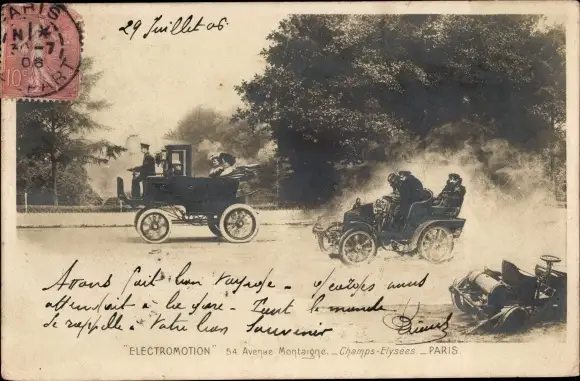 PARIS
30-7
06
DÉPART
10
29 Juillet 06
Avons fait bon voyage -
attendait à la gare - Tout le monde
se rappelle à votre bon souvenir
"ELECTROMOTION" 54 Avenue Montaigne. _ Champs-Elysées _ PARIS